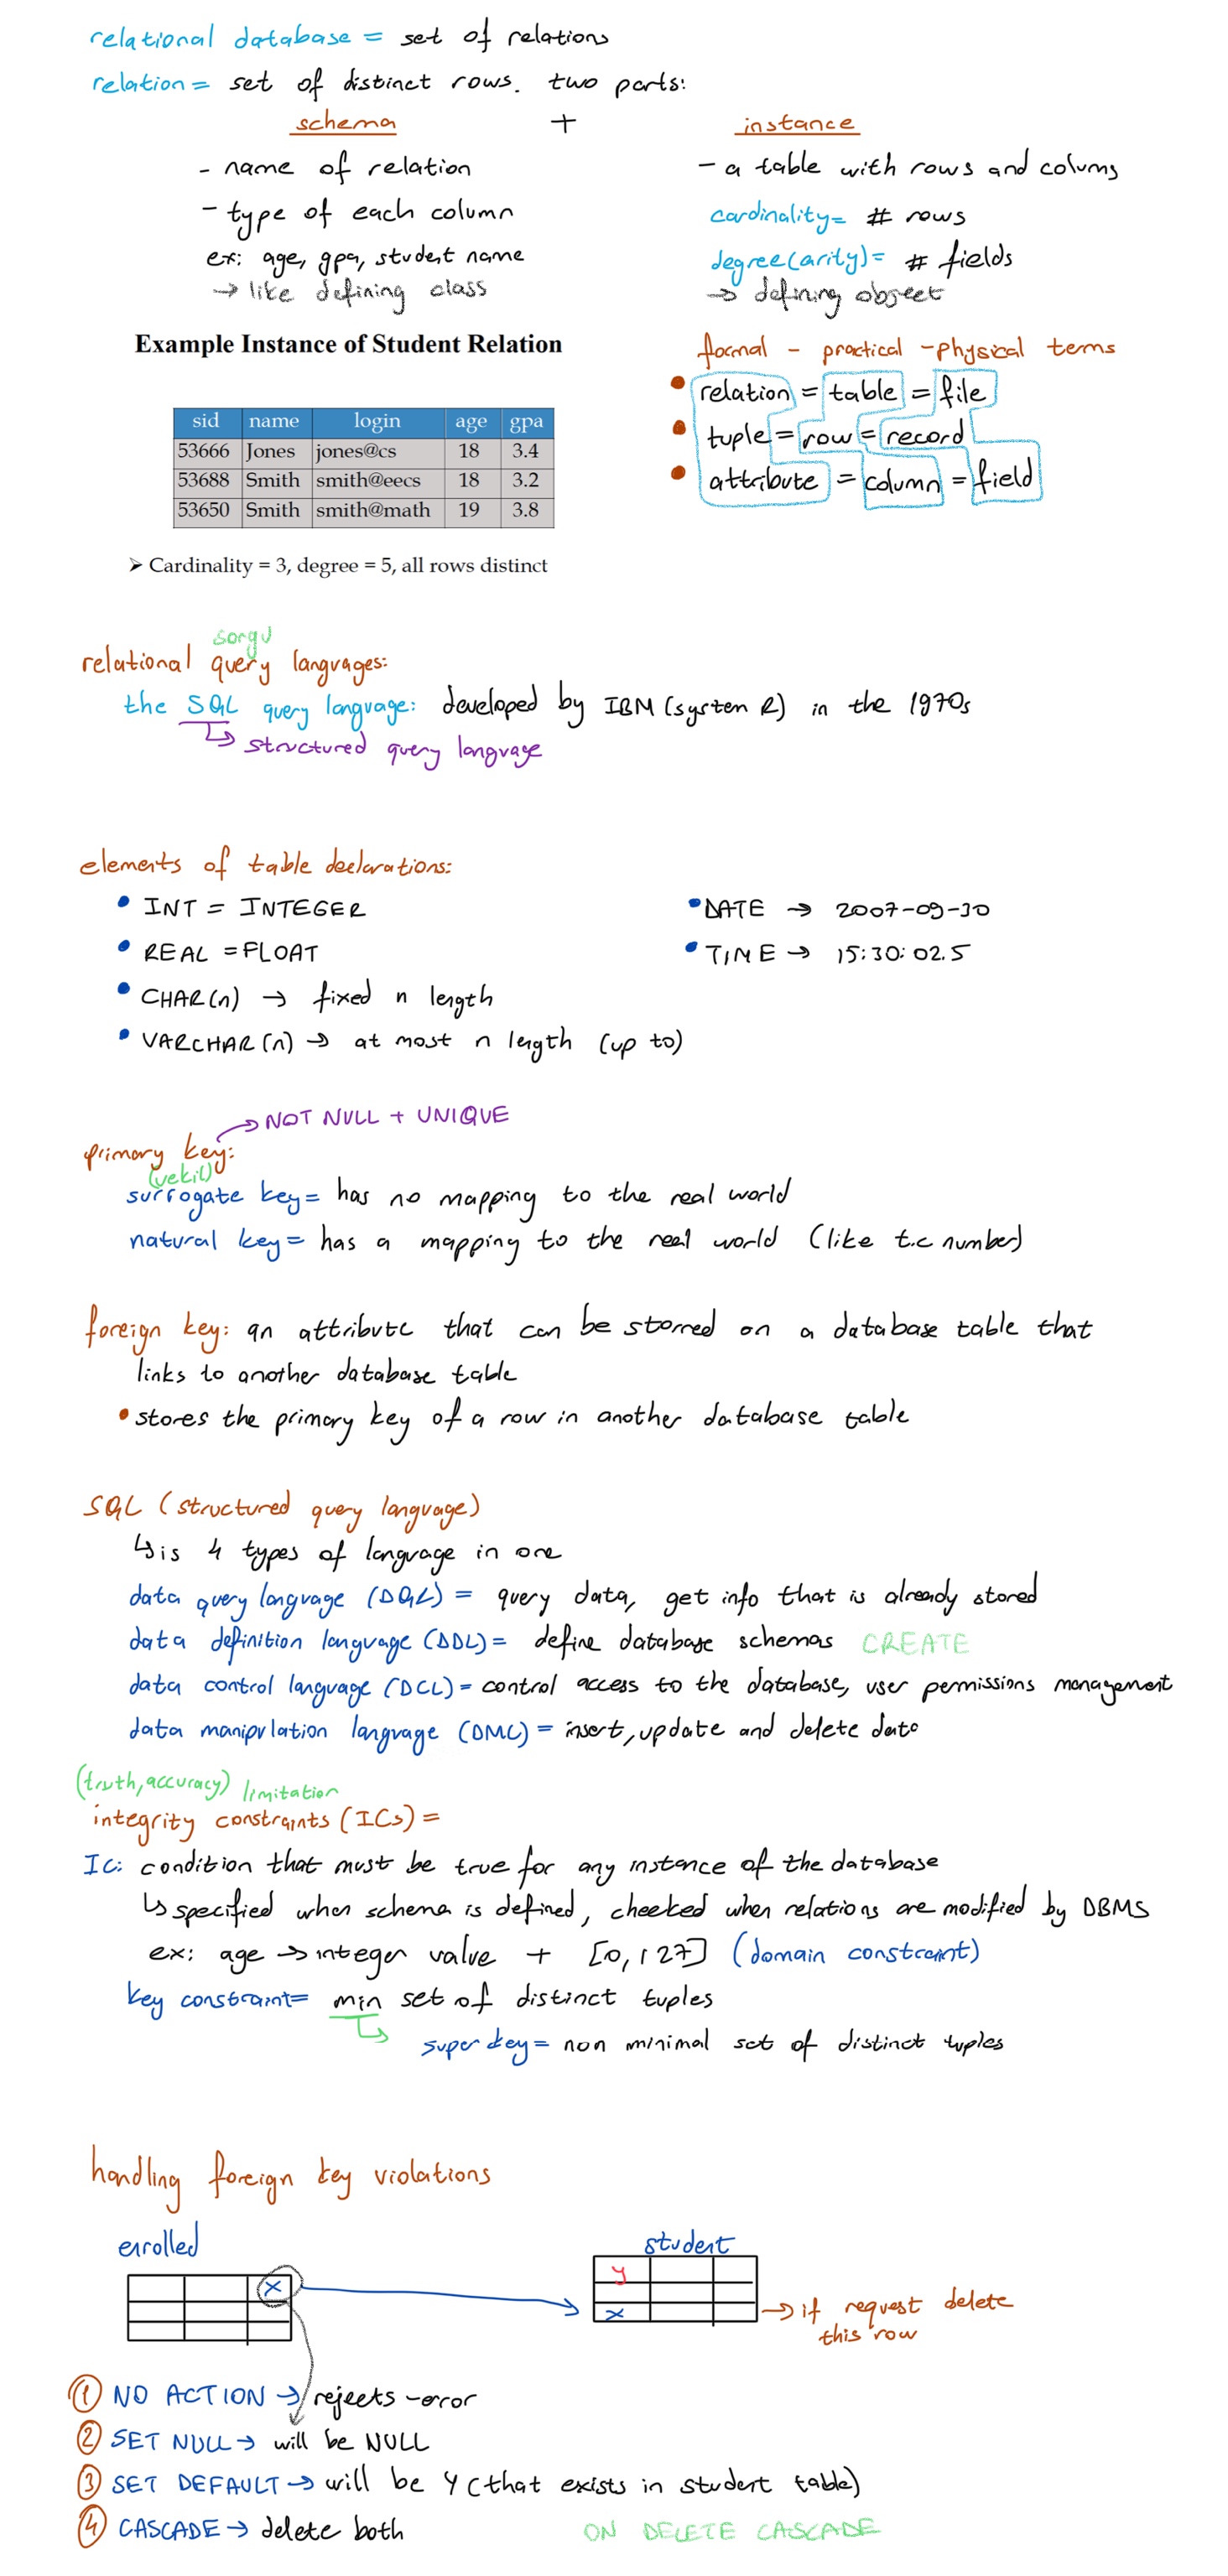 relational database = set of relations
relation = set of distinct rows. two parts:
schema + instance
- name of relation
- type of each column
ex: age, gpa, student name
→ like defining class
- a table with rows and colums
cardinality = # rows
degree(arity) = # fields
→ defining object
Example Instance of Student Relation
sid name login age gpa
53666 Jones jones@cs 18 3.4
53688 Smith smith@eecs 18 3.2
53650 Smith smith@math 19 3.8
➤ Cardinality = 3, degree = 5, all rows distinct
formal - practical - physical terms
• relation = table = file
• tuple = row = record
• attribute = column = field
sorgu
relational query languages:
the SQL query language: developed by IBM (system R) in the 1970s
↳ structured query language
elements of table declarations:
• INT = INTEGER
• REAL = FLOAT
• CHAR(n) → fixed n length
• VARCHAR(n) → at most n length (up to)
• DATE → 2007-09-30
• TIME → 15:30:02.5
→ NOT NULL + UNIQUE
primary key:
(vekil)
surrogate key = has no mapping to the real world
natural key = has a mapping to the real world (like t.c number)
foreign key: an attribute that can be storred on a database table that
links to another database table
• stores the primary key of a row in another database table
SQL (structured query language)
↳ is 4 types of language in one
data query language (DQL) = query data, get info that is already stored
data definition language (DDL) = define database schemas CREATE
data control language (DCL) = control access to the database, user permissions management
data manipulation language (DML) = insert, update and delete data
(truth, accuracy) limitation
integrity constraints (ICs) =
IC: condition that must be true for any instance of the database
↳ specified when schema is defined, checked when relations are modified by DBMS
ex: age → integer value + [0,127] (domain constraint)
key constraint = min set of distinct tuples
↳ super key = non minimal set of distinct tuples
handling foreign key violations
enrolled
x
student
y
x
→ if request delete
this row
1 NO ACTION → rejects - error
2 SET NULL → will be NULL
3 SET DEFAULT → will be y (that exists in student table)
4 CASCADE → delete both ON DELETE CASCADE